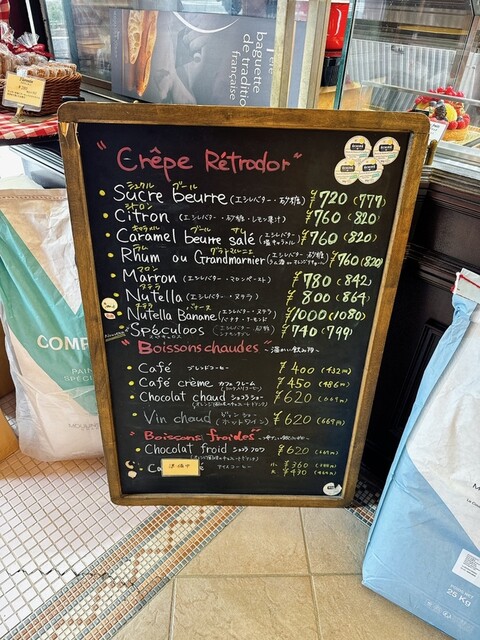 baguette
de tradition
française
"Crêpe Rétrodor"
シュクル ブール
Sucre beurre (エシレバター・砂糖) ¥720 (777)
シトロン
Citron (エシレバター・砂糖・レモン果汁) ¥760 (820)
キャラメル ブール サレ
Caramel beurre salé (エシレバター・塩キャラメル) ¥760 (820)
ラム グランマルニエ
Rhum ou Grandmarnier ¥760 (820)
マロン
Marron (エシレバター・マロンペースト) ¥780 (842)
ヌテラ
Nutella (エシレバター・ヌテラ) ¥800 (864)
Nutella Banane ¥1000 (1080)
Spéculoos ¥740 (799)
"Boissons chaudes" ~温かい飲み物~
Café ブレンドコーヒー ¥400 (432)
Café crème カフェクレーム ¥450 (486)
Chocolat chaud ショコラショー ¥620
Vin chaud ヴァンショー (ホットワイン) ¥620
"Boissons froides"
Chocolat froid ショコラフロワ ¥620
準備中
アイスコーヒー 小 ¥360
大 ¥430
COMP
PAIN
25 KG